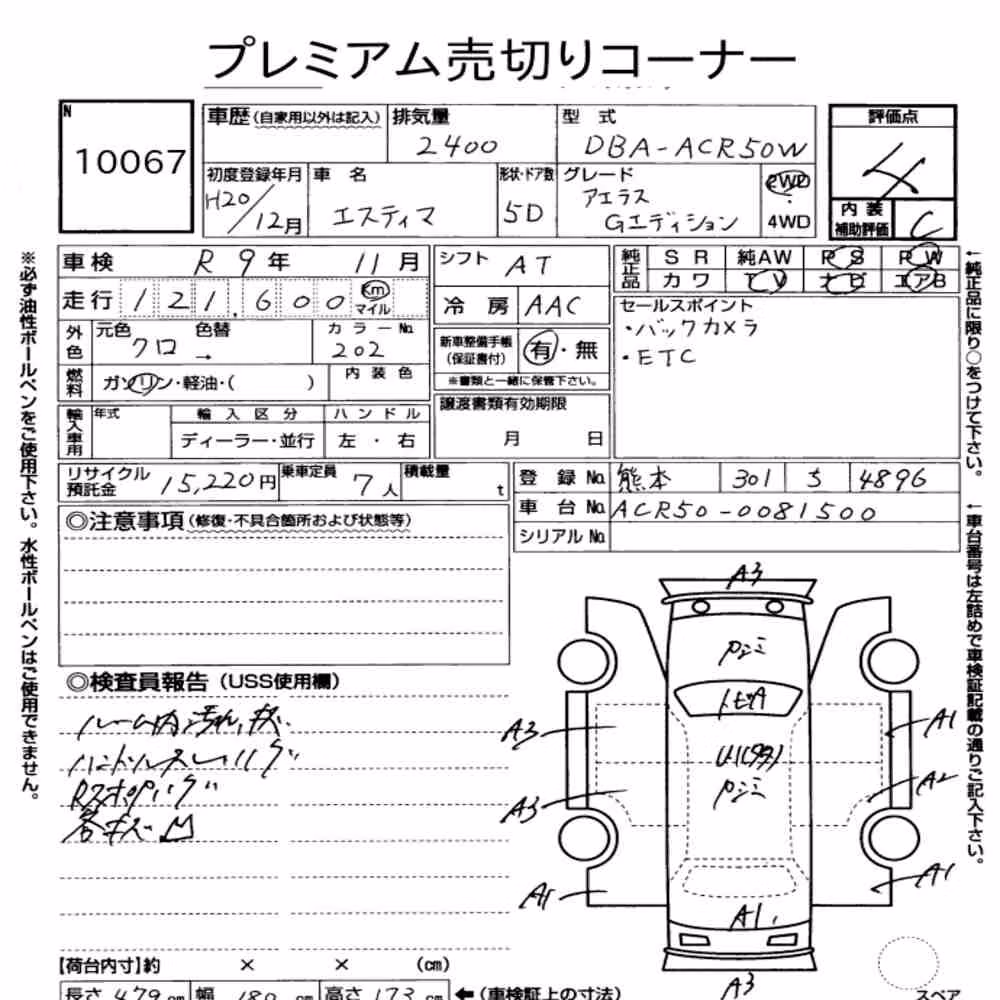 プレミアム売切りコーナー
N
10067
車歴 (自家用以外は記入)
排気量
2400
型式
DBA-ACR50W
評価点
4
初度登録年月
H20/12月
車名
エスティマ
形状・ドア数
5D
グレード
アエラス
Gエディション
2WD
・
4WD
内装
補助評価
C
車検 R 9年 11月
走行 121,600 km
マイル
外色
元色
クロ
色替
→
カラーNo.
202
燃料
ガソリン・軽油・( )
内装色
輸入車用
年式
輸入区分
ディーラー・並行
ハンドル
左・右
シフト AT
冷房 AAC
新車整備手帳
(保証書付)
有・無
※書類と一緒に保管下さい。
譲渡書類有効期限
月 日
純正品
SR 純AW PS PW
カワ TV ナビ エアB
セールスポイント
・バックカメラ
・ETC
リサイクル
預託金
15,220円
乗車定員
7人
積載量
t
登録No. 熊本 301 5 4896
車台No. ACR50-0081500
シリアルNo.
◎注意事項 (修復・不具合箇所および状態等)
◎検査員報告 (USS使用欄)
ルーム内汚れ,
ハンドルスレ
各キズ凹
A3
A3
A3
A1
A1
A2
A1
A1
A3
【荷台内寸】約 × × (cm)
長さ 479 cm 幅 180 cm 高さ 173 cm ←(車検証上の寸法)
スペア
※必ず油性ボールペンをご使用下さい。水性ボールペンはご使用できません。
←純正品に限り○をつけて下さい。
←車台番号は左詰めで車検証記載の通りご記入下さい。